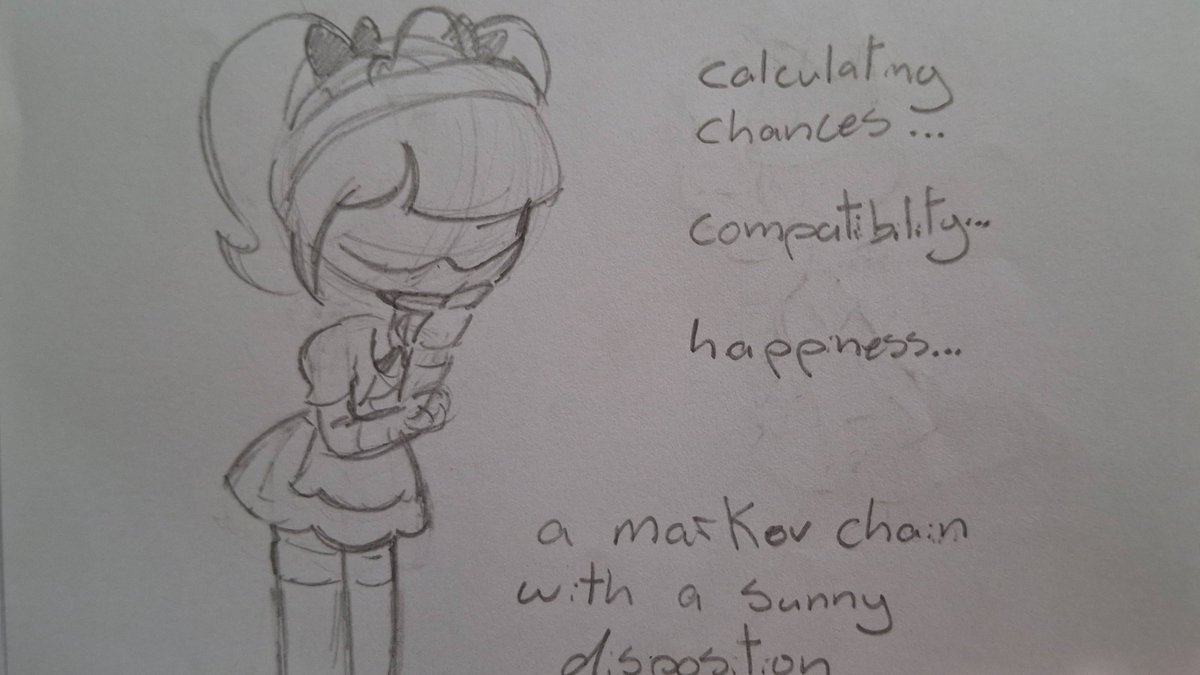 calculating
chances...
compatibility...
happiness...
a markov chain
with a sunny
disposition